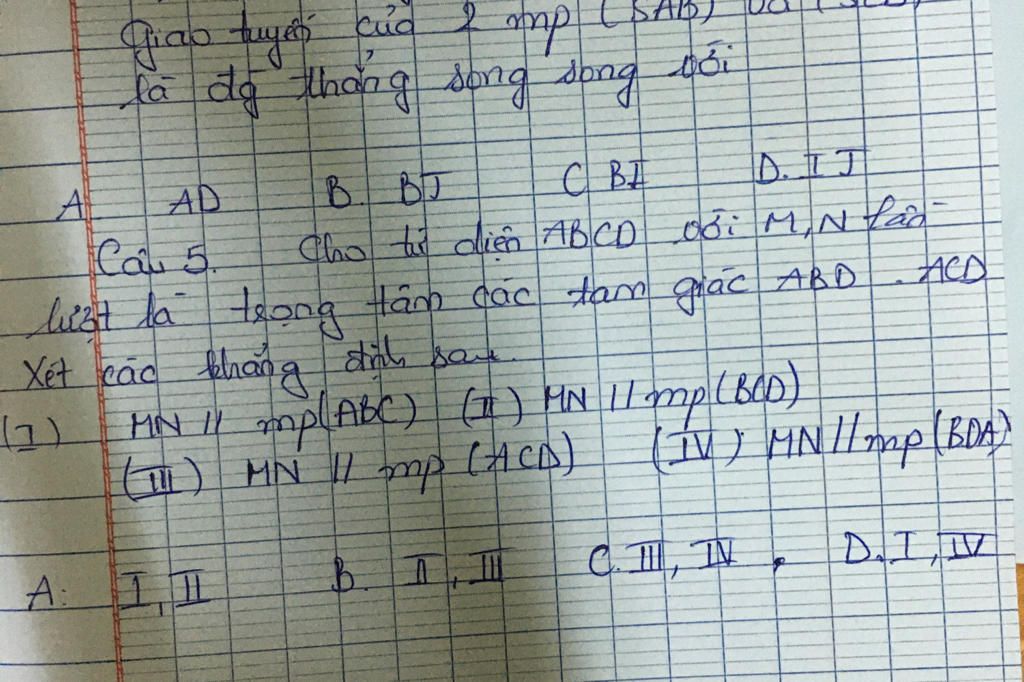 Giao tuyến của 2 mp (SAB) và (SCD)
là đg thẳng song song với
A AD B. BJ C BI D. IJ
Câu 5. Cho tứ diện ABCD với M, N lần
lượt là trọng tâm các tam giác ABD . ACD
Xét các khẳng định sau.
(I) MN // mp(ABC) (II) MN // mp(BCD)
(III) MN // mp (ACD) (IV) MN // mp(BDA)
A: I, II B. II, III C. III, IV . D. I, IV